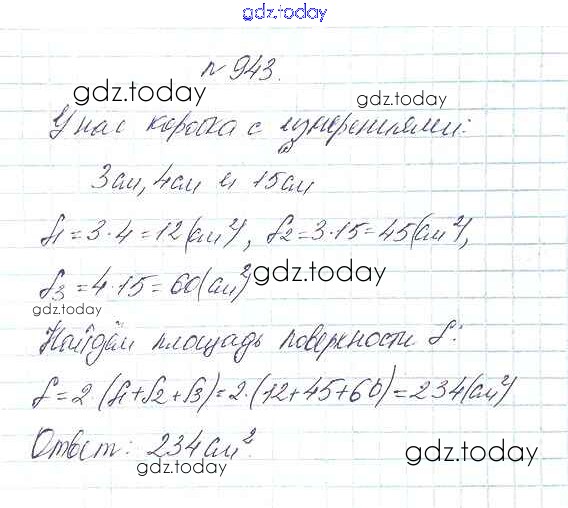 gdz.today
№ 943.
gdz.today
gdz.today
У нас коробка с измерениями:
3 см, 4 см и 15 см
S1 = 3 · 4 = 12 (см²), S2 = 3 · 15 = 45 (см²),
S3 = 4 · 15 = 60 (см²)
gdz.today
gdz.today
Найдём площадь поверхности S:
S = 2 · (S1 + S2 + S3) = 2 · (12 + 45 + 60) = 234 (см²)
Ответ: 234 см².
gdz.today
gdz.today